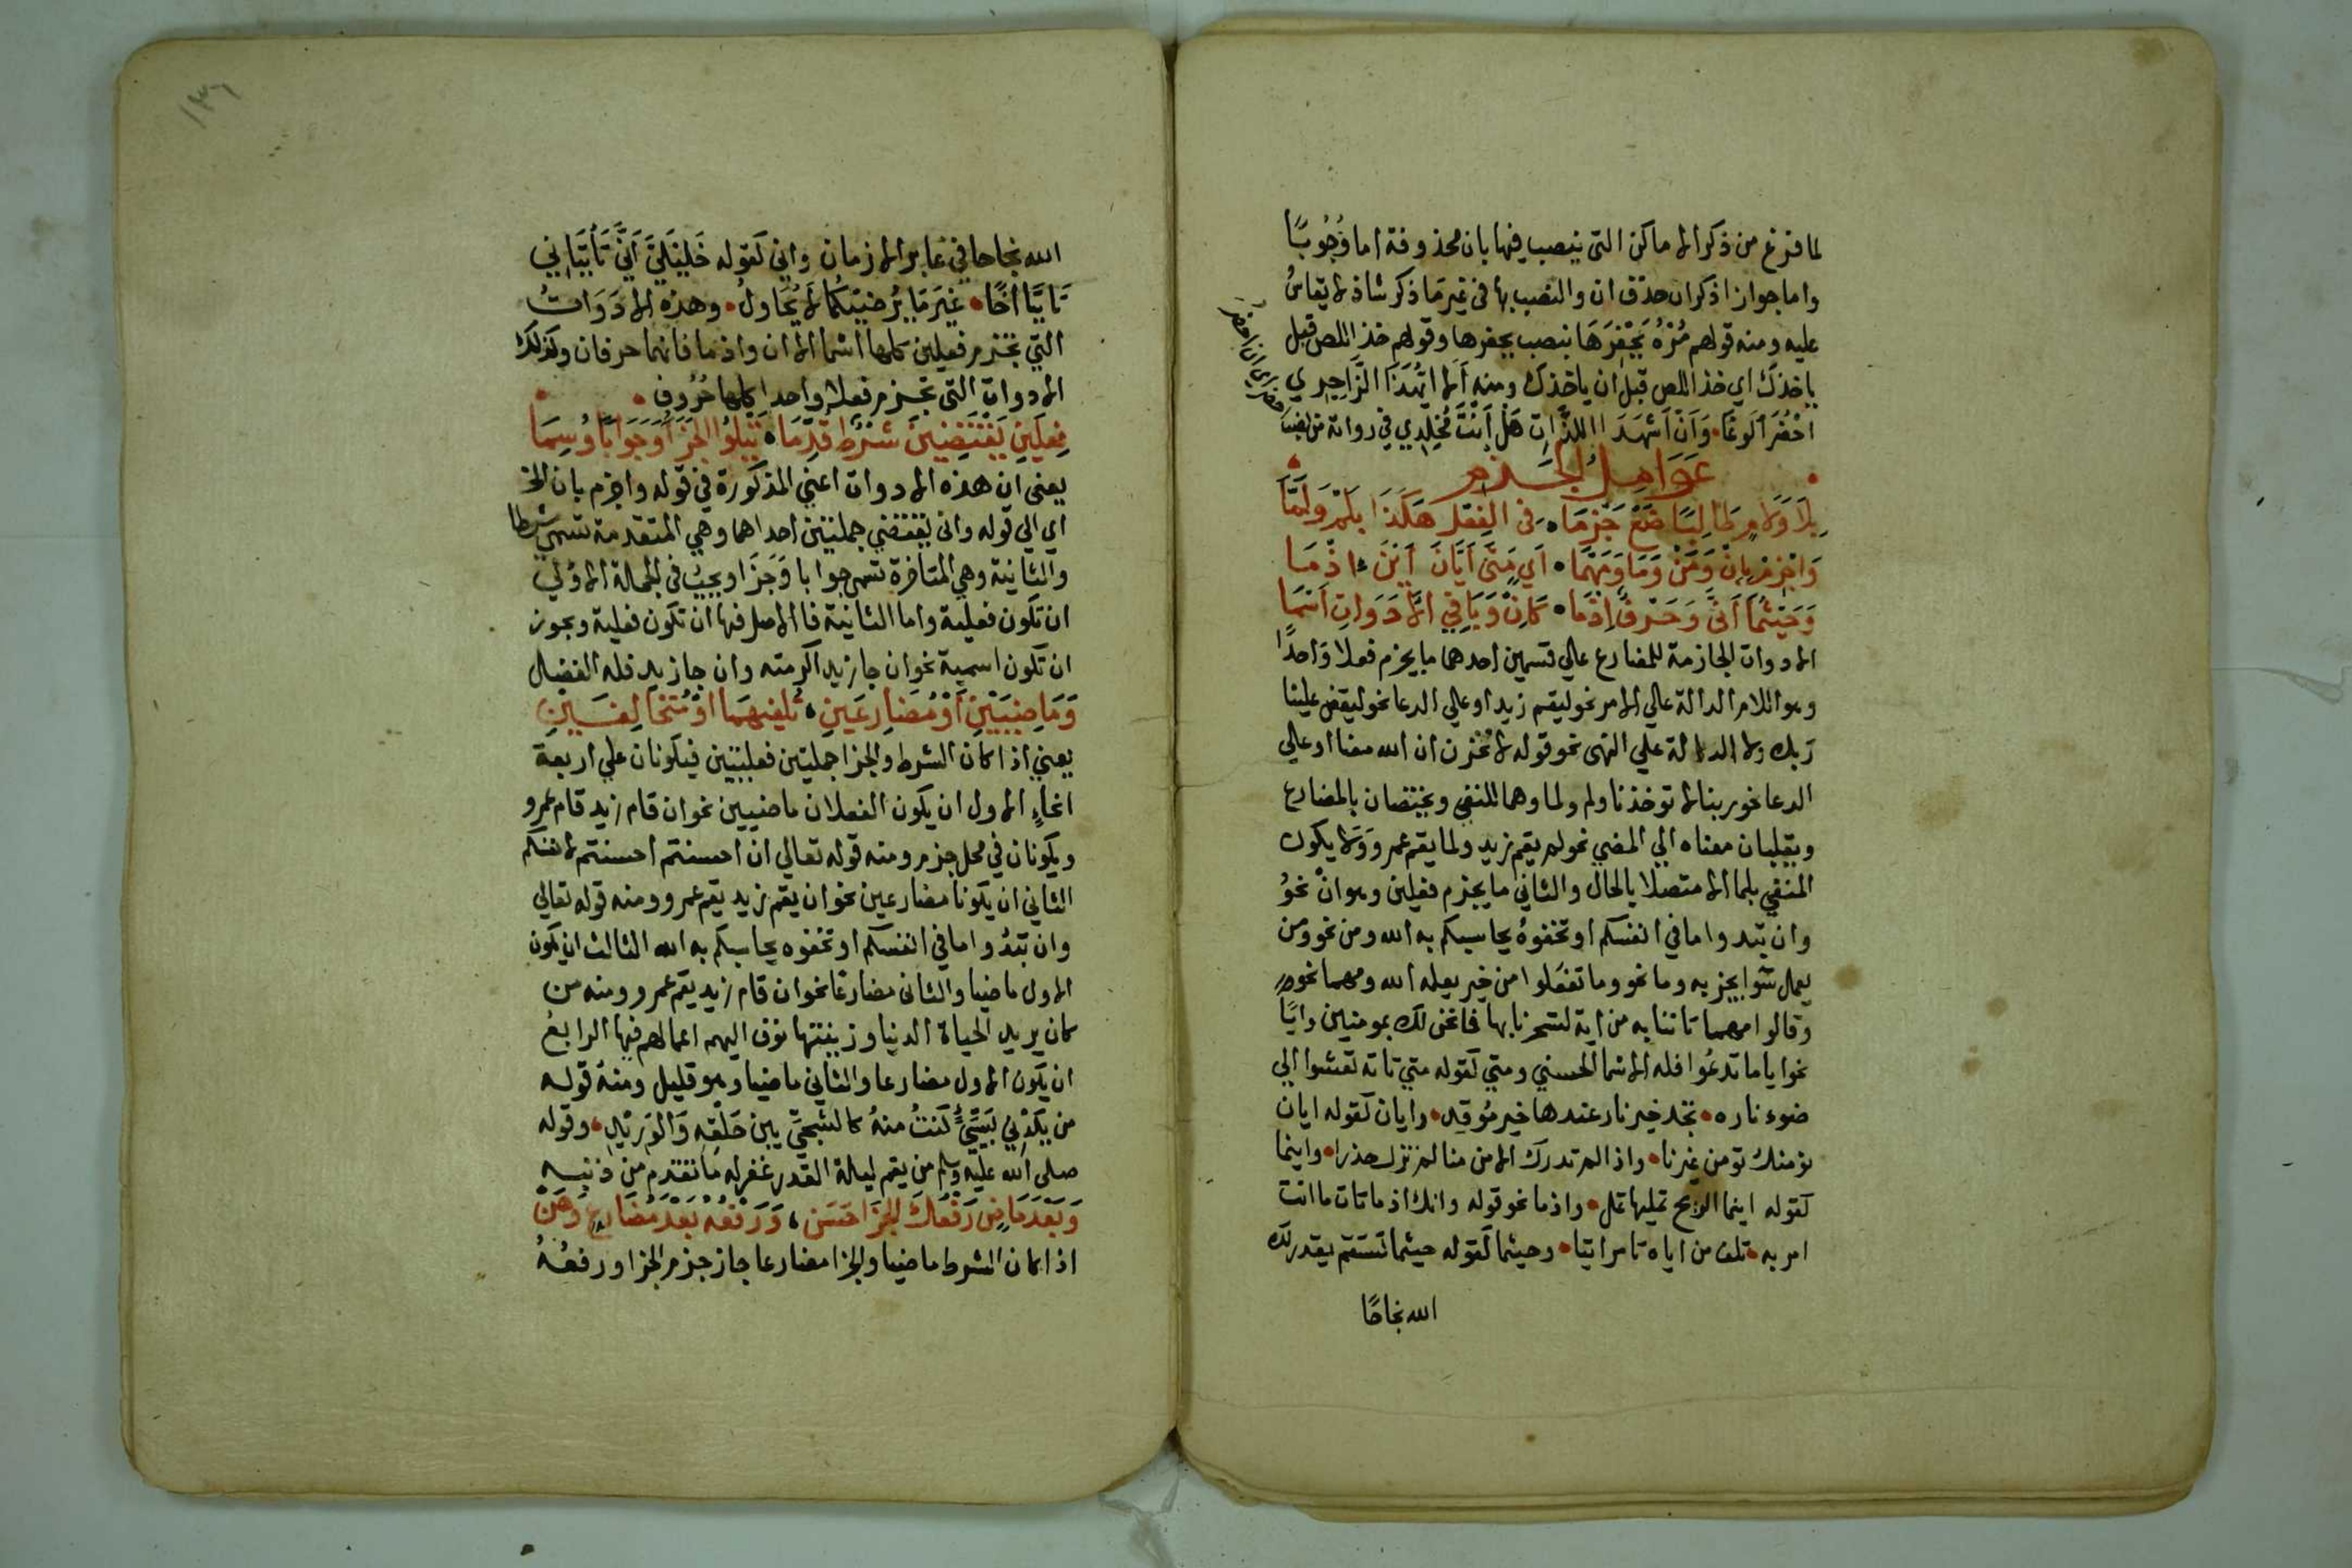 لما فرغ من ذكر الاماكن التي ينصب فيها بان محذوفة اما وُجُوبًا
واما جوازا ذكر ان حذف ان والنصب بها في غير ما ذكر شاذ لا يقاسُ
عليه ومنه قولهم مُرْهُ يَحْفِرَهَا بنصب يحفرها وقولهم خذ اللص قبل
ياخذك اي خذ اللص قبل ان ياخذك ومنه أَلا ايُّهَذَا الزَّاجِرِي
احْضُرَ الوغَا وَأَنْ أَشْهَدَ اللذَّاتِ هَلْ أَنْتَ مُخْلِدِي في رواية من نصب
عَوَامِلُ الجَزْم
بِلَا وَلَامٍ طَالِبًا ضَعْ جَزْمَا في الفِعْلِ هَكَذَا بِلَمْ وَلَمَّا
وَاجْزِمْ بِإِنْ وَمَنْ وَمَا وَمَهْمَا أَيٍّ مَتَى أَيَّانَ أَيْنَ اذْمَا
وَحَيْثُمَا أَنَّى وَحَرْفٌ اذْمَا كَانْ وَبَاقِي الأَدَوَاتِ أَسْمَا
الادوات الجازمة للمضارع علي قسمين احدهما ما يجزم فعلا وَاحدًا
وهو اللام الدالة علي الامر نحو ليقم زيد او علي الدعا نحو ليقض علينا
ربك ولا الدالة علي النهى نحو قوله لا تحزن ان الله معنا او علي
الدعا نحو ربنا لا توخذنا ولم ولما وهما للنفي ويختصان بالمضارع
ويقلبان معناه الي المضي نحو لم يقم زيد ولما يقم عمرو وَلا يكون
المنفي بلما الا متصلا بالحال والثاني ما يجزم فعلين وهو انْ نحوُ
وان تبدوا ما في انفسكم او تخفوهُ يحاسبكم به الله ومن نحو ومن
يعمل سُوا يجز به وما نحو وما تفعَلوا من خير يعلمه الله ومهما نحو
وقالوا مهما تاتنا به من اية لتسحرنا بها فما نحن لك بمومنين وايًا
نحو اياما تدعُوا فله الاسما الحسني ومتي كقوله متي تاته تعشوا الي
ضوء ناره تجد خير نار عندها خير مُوقِد وايان كقوله ايان
نومنك تومن غيرنا واذا لم تدرك الامن منا لم تزل حذرا واينما
كقوله اينما الريح تميلها تمل واذما نحو قوله وانك اذ ما تات ما انت
امر به تلف من اياه تامر اتيا وحيثما كقوله حيثما تستقم يقدر لك
الله نجاحًا
١٣٦
الله نجاحا في غابر الازمان واني كقوله خَلِيلَيَّ أَنَّى تَأْتِيَانِي
تَاتِيَا أخًا غَيْرَ مَا يُرْضِيكُمَا لَا يُحَاولُ وهذه الادَوَاتُ
التي تجزم فعلين كلها اسْما الا ان واذما فانهما حرفان وكذلك
الادوات التي تجزم فعلا واحدا كلها حُرُوف
فِعْلَيْنِ يَقْتَضِينَ شَرْطٌ قُدِّمَا يَتْلُو الجَزَا وَجَوَابًا وُسِمَا
يعني ان هذه الادوات اعني المذكورة في قوله واجزم بان الخ
اي الي قوله واني يقتضي جملتين احداهما وهي المتقدمة تسمي شرطا
والثانية وهي المتاخرة تسمى جوابا وَجَزَا ويجبُ في الجملة الاولي
ان تكون فعلية واما الثانية فالاصل فيها ان تكون فعلية ويجوز
ان تكون اسمية نحو ان جا زيد اكرمته وان جا زيد فله الفضل
وَمَاضِيَيْنِ أَوْ مُضَارِعَيْنِ تُلْفِيهِمَا أَوْ مُتَخَالِفَيْنِ
يعني اذا كان الشرط والجزا جملتين فعليتين فيكونان علي اربعة
انحاءٍ الاول ان يكون الفعلان ماضيين نحو ان قام زيد قام عمرو
ويكونان في محل جزم ومنه قوله تعالي ان احسنتم احسنتم لانفسكم
الثاني ان يكونا مضارعين نحو ان يقم زيد يقم عمرو ومنه قوله تعالي
وان تبدُوا ما في انفسكم او تخفوه يحاسبكم به الله الثالث ان يكون
الاول ماضيا والثاني مضارعًا نحو ان قام زيد يقم عمرو ومنه من
كان يريد الحياة الدنيا وزينتها نوف اليهم اعمالهم فيها الرابعُ
ان يكون الاول مضارعا والثاني ماضيا وهو قليل ومنهُ قوله
من يكدْني بسَيّءٍ كُنتُ منهُ كالشجَى بين حَلْقِهِ وَالوَرِيدِ وقوله
صلى الله عليه وسلم من يقم ليلة القدر غفر له ما تقدم من ذنبه
وَبَعْدَ مَاضٍ رَفْعُكَ الجَزَا حَسَن وَرَفْعُهُ بَعْدَ مُضَارِعٍ وَهَنْ
اذا كان الشرط ماضيا والجزا مضارعا جاز جزم الجزا ورفعُهُ